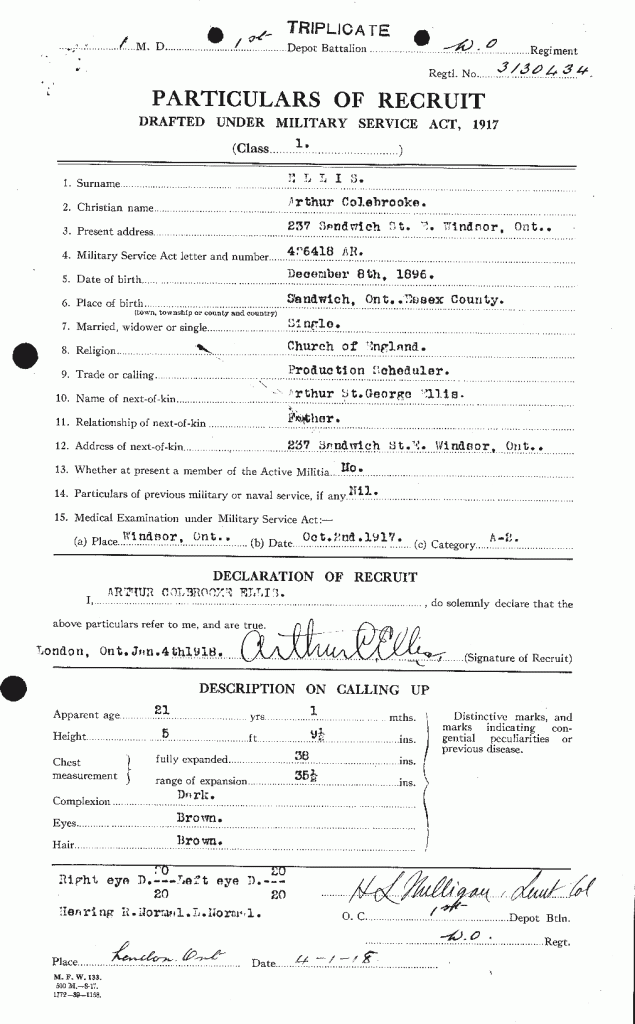 TRIPLICATE
1 M. D. 1st Depot Battalion W. O Regiment
Regtl. No. 3130434
PARTICULARS OF RECRUIT
DRAFTED UNDER MILITARY SERVICE ACT, 1917
(Class 1. )
1. Surname ELLIS.
2. Christian name Arthur Colebrooke.
3. Present address 237 Sandwich St. E. Windsor, Ont..
4. Military Service Act letter and number 426418 AR.
5. Date of birth December 8th, 1896.
6. Place of birth Sandwich, Ont..Essex County.
(town, township or county and country)
7. Married, widower or single Single.
8. Religion Church of England.
9. Trade or calling Production Scheduler.
10. Name of next-of-kin Arthur St.George Ellis.
11. Relationship of next-of-kin Father.
12. Address of next-of-kin 237 Sandwich St.E. Windsor, Ont..
13. Whether at present a member of the Active Militia No.
14. Particulars of previous military or naval service, if any Nil.
15. Medical Examination under Military Service Act:—
(a) Place Windsor, Ont.. (b) Date Oct.2nd.1917. (c) Category A-2.
DECLARATION OF RECRUIT
I, ARTHUR COLBROOKE ELLIS. , do solemnly declare that the
above particulars refer to me, and are true.
London, Ont.Jan.4th1918. Arthur C Ellis, (Signature of Recruit)
DESCRIPTION ON CALLING UP
Apparent age 21 yrs 1 mths.
Height 5 ft 9½ ins.
Chest measurement } fully expanded 38 ins.
range of expansion 35½ ins.
Complexion Dark.
Eyes Brown.
Hair Brown.
Distinctive marks, and
marks indicating con-
genital peculiarities or
previous disease.
Right eye D. 20 --- 20 Left eye D. 20 --- 20
Hearing R.Normal.L.Normal.
H L Milligan, Lieut Col
O. C. 1st Depot Btln.
W.O. Regt.
Place London Ont Date 4-1-18
M. F. W. 133.
500 M.—8-17.
1772—39—1158.